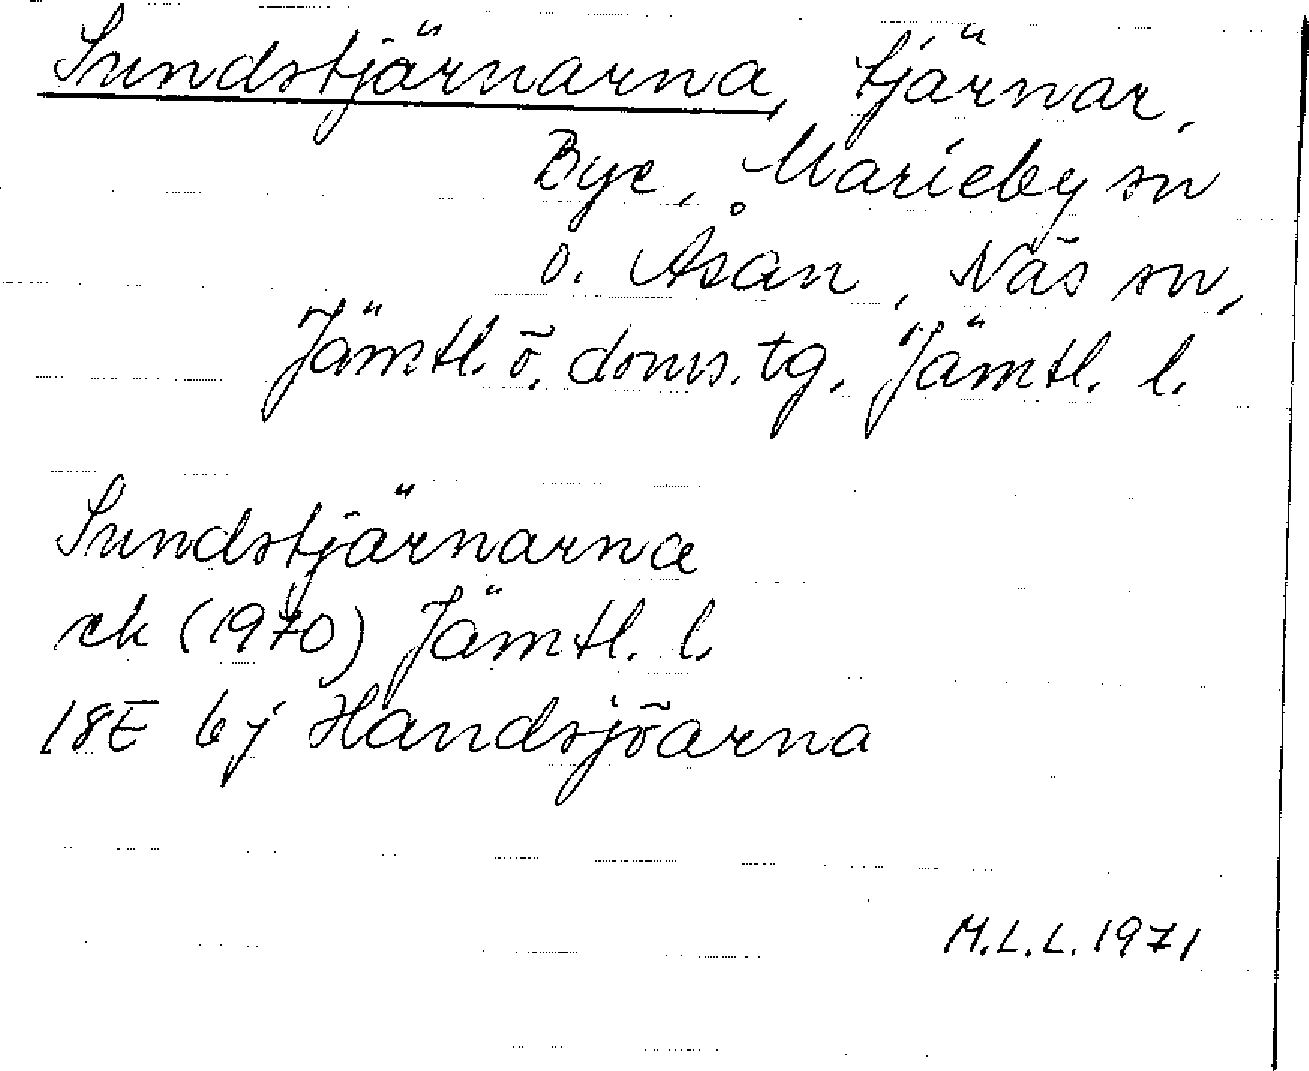 Sundstjärnarna, tjärnar,
Bye, Marieby sn
o. Åsan, Näs sn,
Jämtl. ö. doms. tg. Jämtl. l.
Sundstjärnarna
ek (1970) Jämtl. l.
18E 6j Handsjöarna
M.L.L. 1971